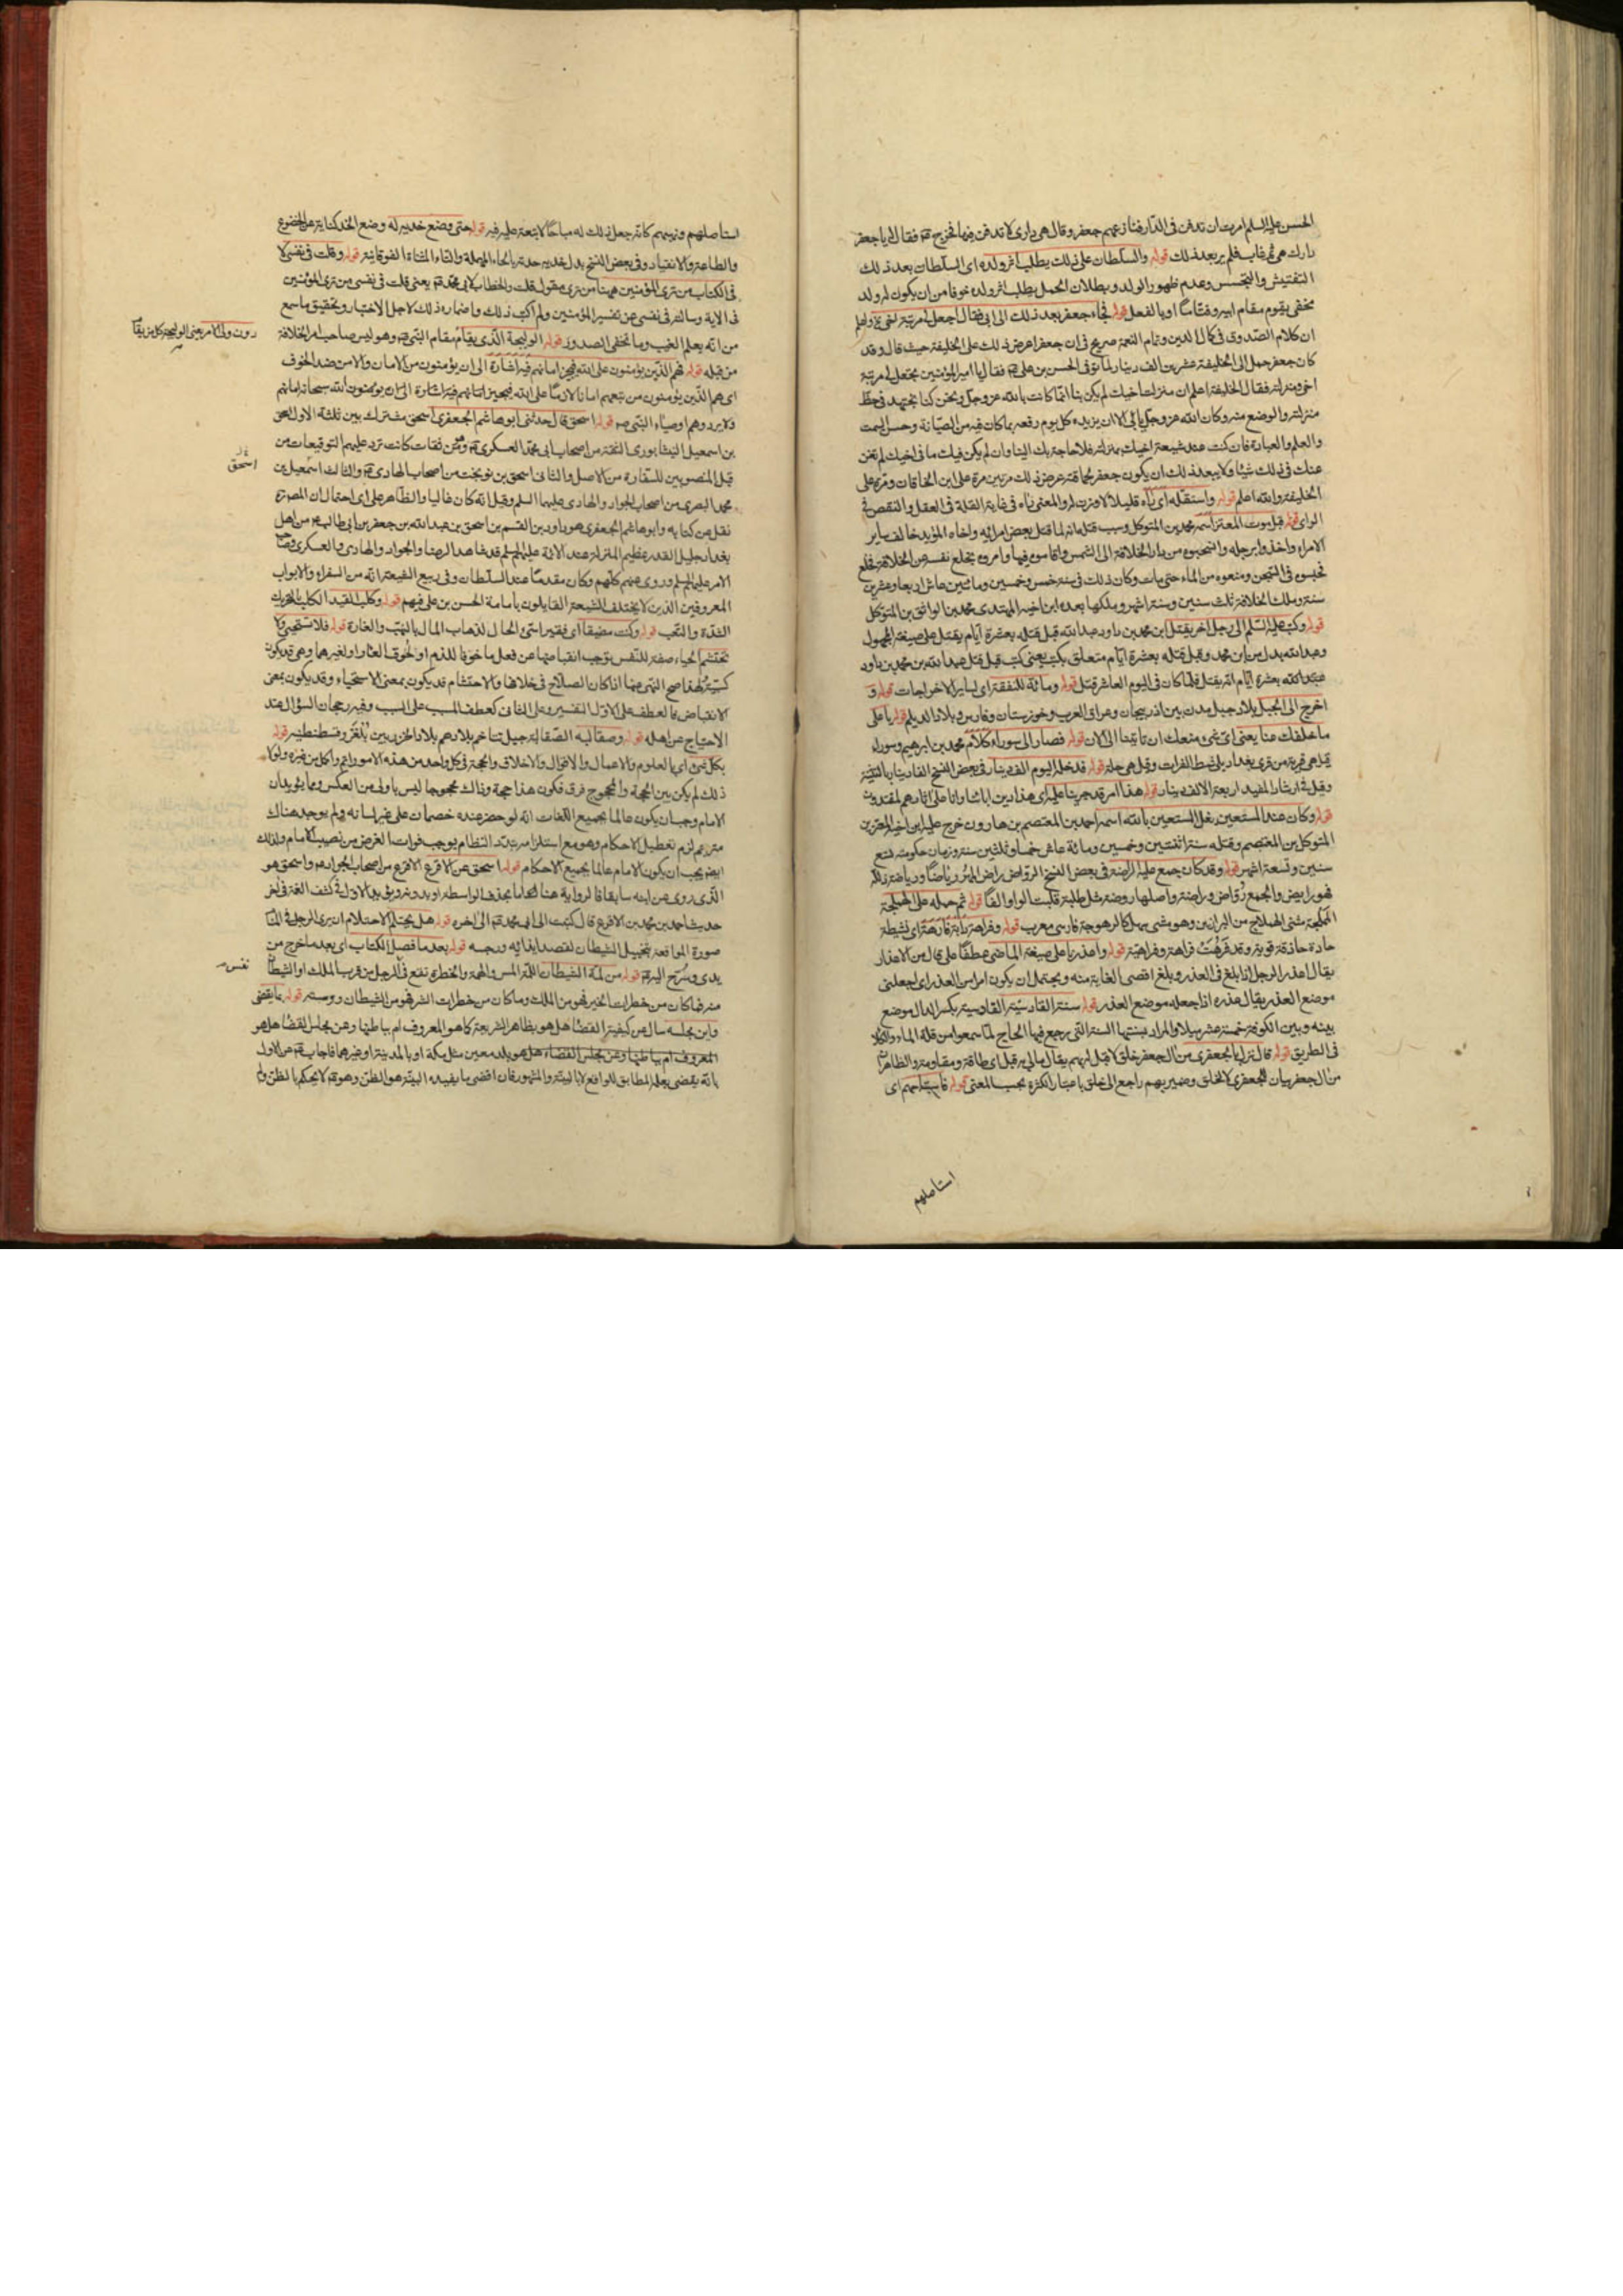 الحسن عليه السلم امرت ان تدفن فى الدار فنازعهم جعفر وقال هى دارى لا تدفن فيها فخرج فقال له يا جعفر
دارك هى ثم غاب فلم ير بعد ذلك قوله والسلطان على ذلك يطلب اثر ولده اى السلطان بعد ذلك
التفتيش والتجسس وعدم ظهور الولد وبطلان الحمل يطلب اثر ولده خوفا من ان يكون له ولد
مخفى يقوم مقام ابيه اما او بالفعل قوله فجاء جعفر بعد ذلك الى ابى فقال اجعل لى مرتبة اخى
ان كلام الصدوق فى كمال الدين وتمام النعمة صريح فى ان جعفرا عرض ذلك على الخليفة حيث قال وقد
كان جعفر حمل الى الخليفة عشرين الف دينار لما توفى الحسن بن على فقال يا امير المؤمنين تجعل لى مرتبة
اخى ومنزلته فقال الخليفة اعلم ان منزلة اخيك لم يكن بنا انما كانت بالله عز وجل ونحن كنا نجتهد فى حط
منزلته والوضع منه وكان الله عز وجل يابى الا ان يزيده كل يوم رفعة بما كان فيه من الصيانة وحسن السمت
والعلم والعبادة فان كنت عند شيعة اخيك بمنزلته فلا حاجة بك الينا وان لم يكن فيك ما فى اخيك لم نغن
عنك فى ذلك شيئا ولا يبعد ذلك ان يكون جعفر عرض ذلك مرتين مرة على ابن الخاقان ومرة على
الخليفة والله اعلم قوله واستقله اى رآه قليلا لا وزن له والمعنى رآه فى غاية القلة فى العقل والنقص فى
الراى قوله قبل موت المعتز اسمه محمد بن المتوكل وسبب قتله انه لما قتل بعض امرائه واخاه المؤيد خالف ساير
الامراء واخذوا برجله وسحبوه من دار الخلافة الى الشمس واقاموه فيها وامروه بخلع نفسه عن الخلافة فخلع
فحبسوه فى السجن ومنعوه من الماء حتى مات وكان ذلك فى سنة خمس وخمسين ومائتين عاش اربعا وعشرين
سنة وملك الخلافة ثلث سنين وستة اشهر وملكها بعده ابن اخيه المهتدى محمد بن الواثق بن المتوكل
قوله وكتب عليه السلم الى رجل اخر يقتل ابن محمد بن داود عبد الله قبل قتله بعشرة ايام يقتل على صيغة المجهول
وعبد الله بدل من ابن محمد وقبل قتله بعشرة ايام متعلق بكتب يعنى كتب قبل قتل عبد الله بن محمد بن داود
عبد الله بعشرة ايام انه يقتل فلما كان فى اليوم العاشر قتل قوله ومائة للنفقة اى لساير الاخراجات قوله
اخرج الى الجبل بلاد جبل مدن بين اذربيجان وعراق العرب وخوزستان وفارس وبلاد الديلم قوله يا على
ما خلفك عنا يعنى اى شئ منعك ان تاتينا الى الان قوله فصار الى سوراء كلام محمد بن ابرهيم وسوراء
قيل هى قرية من قرى بغداد بل شط الفرات وقيل هى حلة قوله فدخله اليوم الف دينار فى بعض النسخ الفا دينار بالتثنية
وقيل فى ارشاد المفيد اربعة الالف دينار قوله هذا امر قد جرينا عليه اى هذا دين اباءنا وانا على اثارهم لمقتدون
قوله وكان عند المستعين بغل المستعين بالله اسمه احمد بن المعتصم بن هارون خرج عليه ابن اخيه المعتز بن
المتوكل بن المعتصم وقتله سنة اثنتين وخمسين ومائة عاش خمسا وثلثين سنة وزمان حكومته تسع
سنين وتسعة اشهر قوله وقد كان جمع عليه الراضة فى بعض النسخ الرواض راض المهر رياضا ورياضة ذلله
فهو رايض والجمع رواض وراضة واصلها روضة مثل طلبة قلبت الواو الفا قوله ثم حمله على الهملجة
الهملجة مشى الهملاج من البراذين وهو مشى سهل كالرهوجة فارسى معرب قوله وفراهة دابة فارهة اى نشيطة
حادة حاذقة قوية وقد فرهت فراهة وفراهية قوله واعذرنا على صيغة الماضى عطفا على قال من الاعذار
يقال اعذر الرجل اذا بلغ فى العذر وبلغ اقصى الغاية منه ويحتمل ان يكون امرا من العذر اى اجعلنى
موضع العذر يقال عذره اذا جعله موضع العذر قوله سنة القادسية القادسية بكسر الدال موضع
بينه وبين الكوفة خمسة عشر ميلا والمراد بسنتها السنة التى رجع فيها الحاج لما سمعوا من قلة الماء والكلا
فى الطريق قوله قال نزل بالجعفرى من ال جعفر خلق لا قبل له بهم يقال مالى به قبل اى طاقة ومقاومة والظاهر ان
من ال جعفر بيان للجعفرى لا لخلق وضمير بهم راجع الى خلق باعتبار الكثرة بحسب المعنى قوله فاستباحهم اى
استاصلهم
استاصلهم ونهبهم كانه جعل ذلك له مباحا لا تبعة عليه فيه قوله حتى وضع خديه له وضع الخد كناية عن الخضوع
والطاعة والانقياد وفى بعض النسخ بدل خديه حدته بالحاء المهملة والتاء المثناة الفوقانية قوله وقلت فى نفسى لا
فى الكتاب من ترى المؤمنين ههنا من ترى مقول قلت والخطاب لابى محمد يعنى قلت فى نفسى من ترى المؤمنين
فى الاية وسالته فى نفسى عن تفسير المؤمنين ولم اكتب ذلك واضمار ذلك لاجل الاختبار وتحقيق ما سمع
من انه يعلم الغيب وما تخفى الصدور قوله الوليجة الذى يقام مقام النبى وهو ليس صاحب امر الخلافة
دون ولى الامر يعنى الوليجة كل من يقام
من قبله قوله فهم الذين يؤمنون على الله فيجيز امانهم فيه اشارة الى ان يؤمنون من الامان والامن ضد الخوف
اى هم الذين يؤمنون من تبعهم امانا لازما على الله فيجيز امانهم فيه اشارة الى ان يؤمنون الله سبحانه امانهم
ولا يردهم وهم اوصياء النبى قوله اسحق قال حدثنى ابو هاشم الجعفرى اسحق مشترك بين ثلثة الاول اسحق
بن اسمعيل النيشابورى الثقة من اصحاب ابى محمد العسكرى ومن ثقات كانت ترد عليهم التوقيعات من
اسحق
قبل المنصوبين للسفارة من الاصل والثانى اسحق بن نوبخت من اصحاب الهادى والثالث اسمعيل بن
محمد البصرى من اصحاب الجواد والهادى عليهما السلم وقيل انه كان غاليا والظاهر على اى احتمال ان المص
نقل عن كتابه وابو هاشم الجعفرى هو داود بن القسم بن اسحق بن عبد الله بن جعفر بن ابى طالب من اهل
بغداد جليل القدر عظيم المنزلة عند الائمة عليهم السلم قد شاهد الرضا والجواد والهادى والعسكرى وصاحب
الامر عليهم السلم وروى عنهم كلهم وكان مقدما عند السلطان وفى ربيع الشيعة انه من السفراء والابواب
المعروفين الذين لا يختلف الشيعة القايلون بامامة الحسن بن على فيهم قوله وكلب القيد الكلب بالتحريك
الشدة والتعب قوله وكنت مضيقا اى فقير اسئ الحال لذهاب المال بالنهب والغارة قوله فلا تستحيى ولا
تحتشم الحياء صفة للنفس توجب انقباضها عن فعل ما خوفا للذم او لخوف العقاب او لغيرهما وهى قد يكون
كسبية ولهذا صح النهى عنها اذا كان الصلاح فى خلافها والاحتشام قد يكون بمعنى الاستحياء وقد يكون بمعنى
الانقباض فالعطف على الاول للتفسير وعلى الثانى كعطف المسبب على السبب وفيه رجحان السؤال عند
الاحتياج عن اهله قوله وصقالبه الصقالبة جيل تتاخم بلادهم بلاد الخزر بين بلغر وقسطنطنية قوله
بكل شئ اى بالعلوم والاعمال والاقوال والاخلاق والحجة فى كل واحد من هذه الامور اتم واكمل من غيره ولولا
ذلك لم يكن بين الحجة والمحجوج فرق فكون هذا حجة وذاك محجوجا ليس باولى من العكس ومما يؤيد ان
الامام وجب ان يكون عالما بجميع اللغات انه لو حضر عنده خصمان على غير لسانه ولم يوجد هناك
مترجم لزم تعطيل الاحكام وهو مع استلزامه تبدد النظام يوجب فوات الغرض من نصب الامام ولذلك
ايضا يجب ان يكون الامام عالما بجميع الاحكام قوله اسحق عن الاقرع الاقرع من اصحاب الجواد واسحق هو
الذى روى عن ابنه سابقا فالرواية هنا اما بحذف الواسطة او بدونه ويؤيد الاول فى كشف الغمة فى اخر
حديث احمد بن محمد بن الاقرع قال كتبت الى ابى محمد الى اخره قوله هل يحتلم الاحتلام ان يرى الرجل فى المنام
صورة المواقعة بتخييل الشيطان لقصد ايذائه ورجسه قوله بعد ما فصل الكتاب اى بعد ما خرج من
يدى وسرح اليه قوله من لمة الشيطان اللمة المس والهمة والخطرة تقع فى الرجل من قرب الملك او الشيطان
نفس
منه فما كان من خطرات الخير فهو من الملك وما كان من خطرات الشر فهو من الشيطان ووسته قوله بما يقضى
واين مجلسه سال عن كيفية القضاء هل هو بظاهر الشريعة كما هو المعروف ام بباطنها وعن مجلس القضاء هل هو
المعروف ام بباطنها وعن مجلس القضاء هل هو بلد معين مثل مكة او بالمدينة او غيرهما فاجاب عن الاول
بانه يقضى بعلمه المطابق للواقع لا بالبينة والمشهور فان اقصى ما يفيده البينة هو الظن وهو لا يحكم بالظن